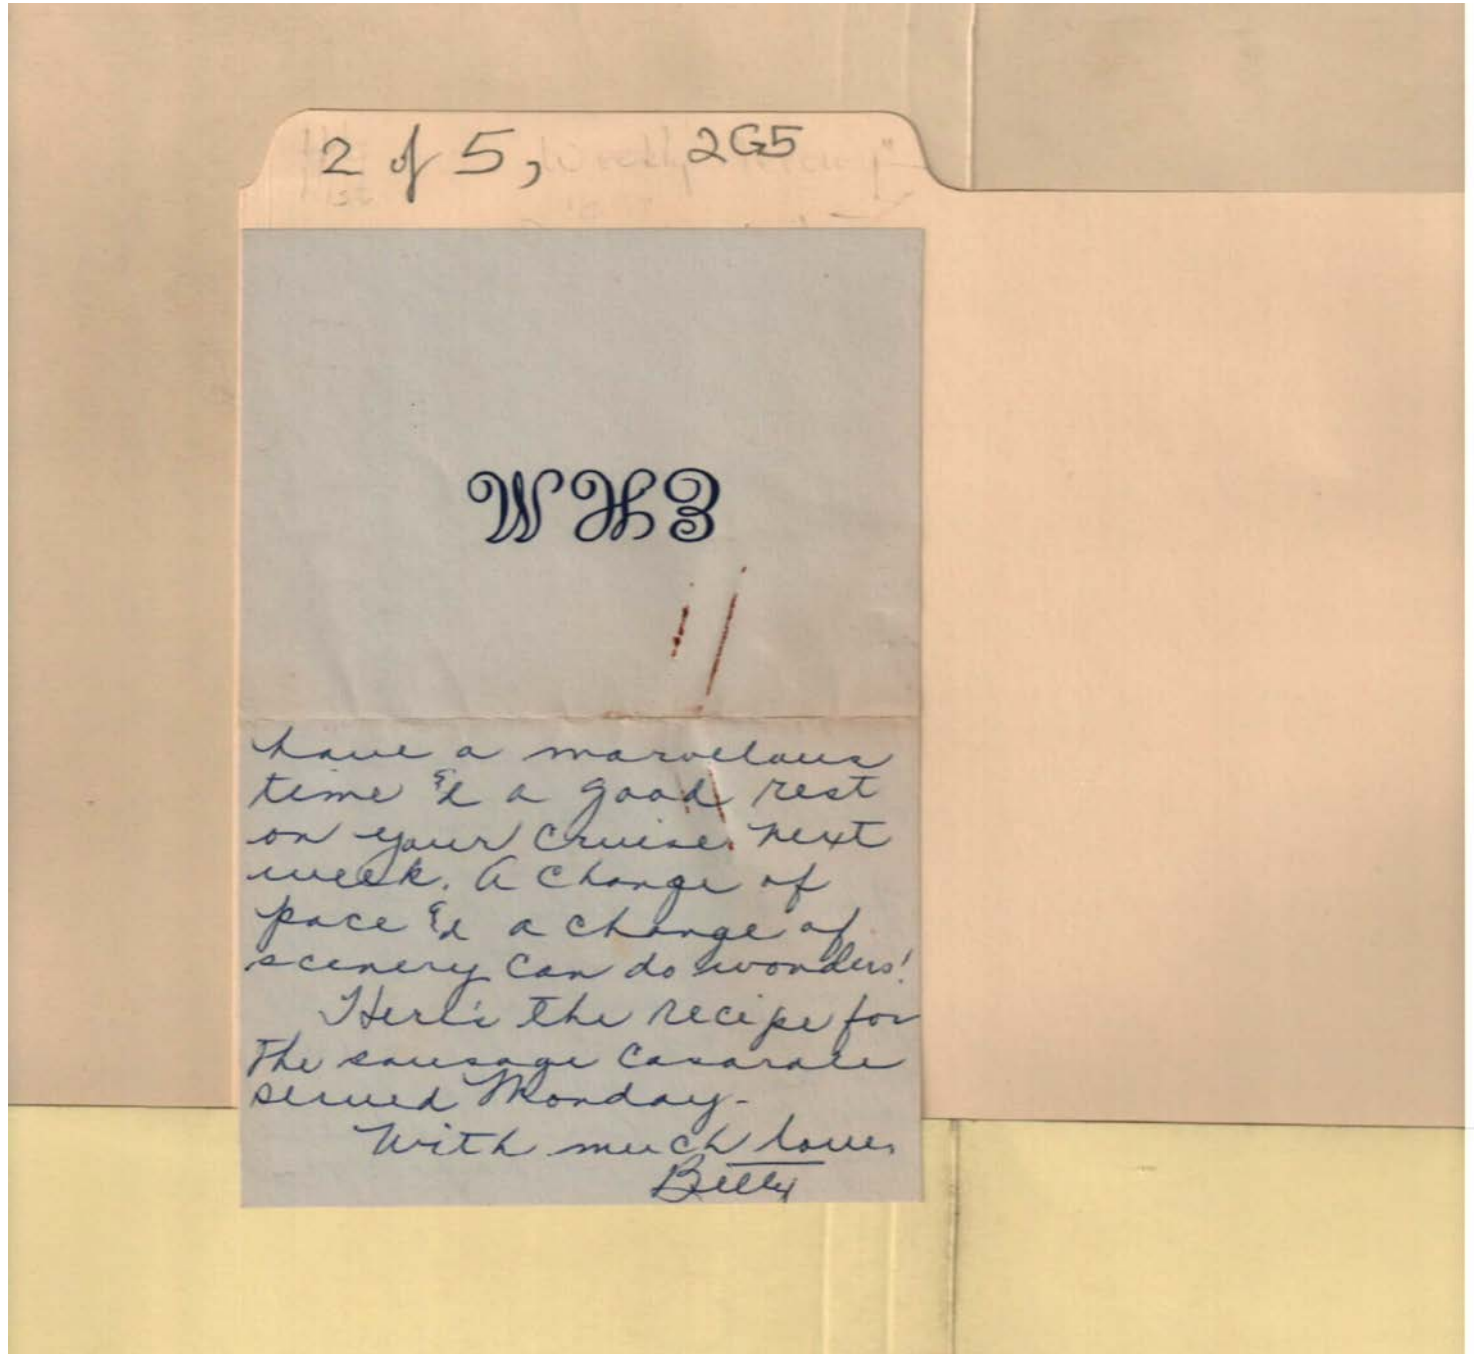 2 of 5, 2G5
WHB
have a marvelous
time & a good rest
on your cruise next
week. A change of
pace & a change of
scenery can do wonders!
Here's the recipe for
the sausage
served Monday-
With much love,
Betty